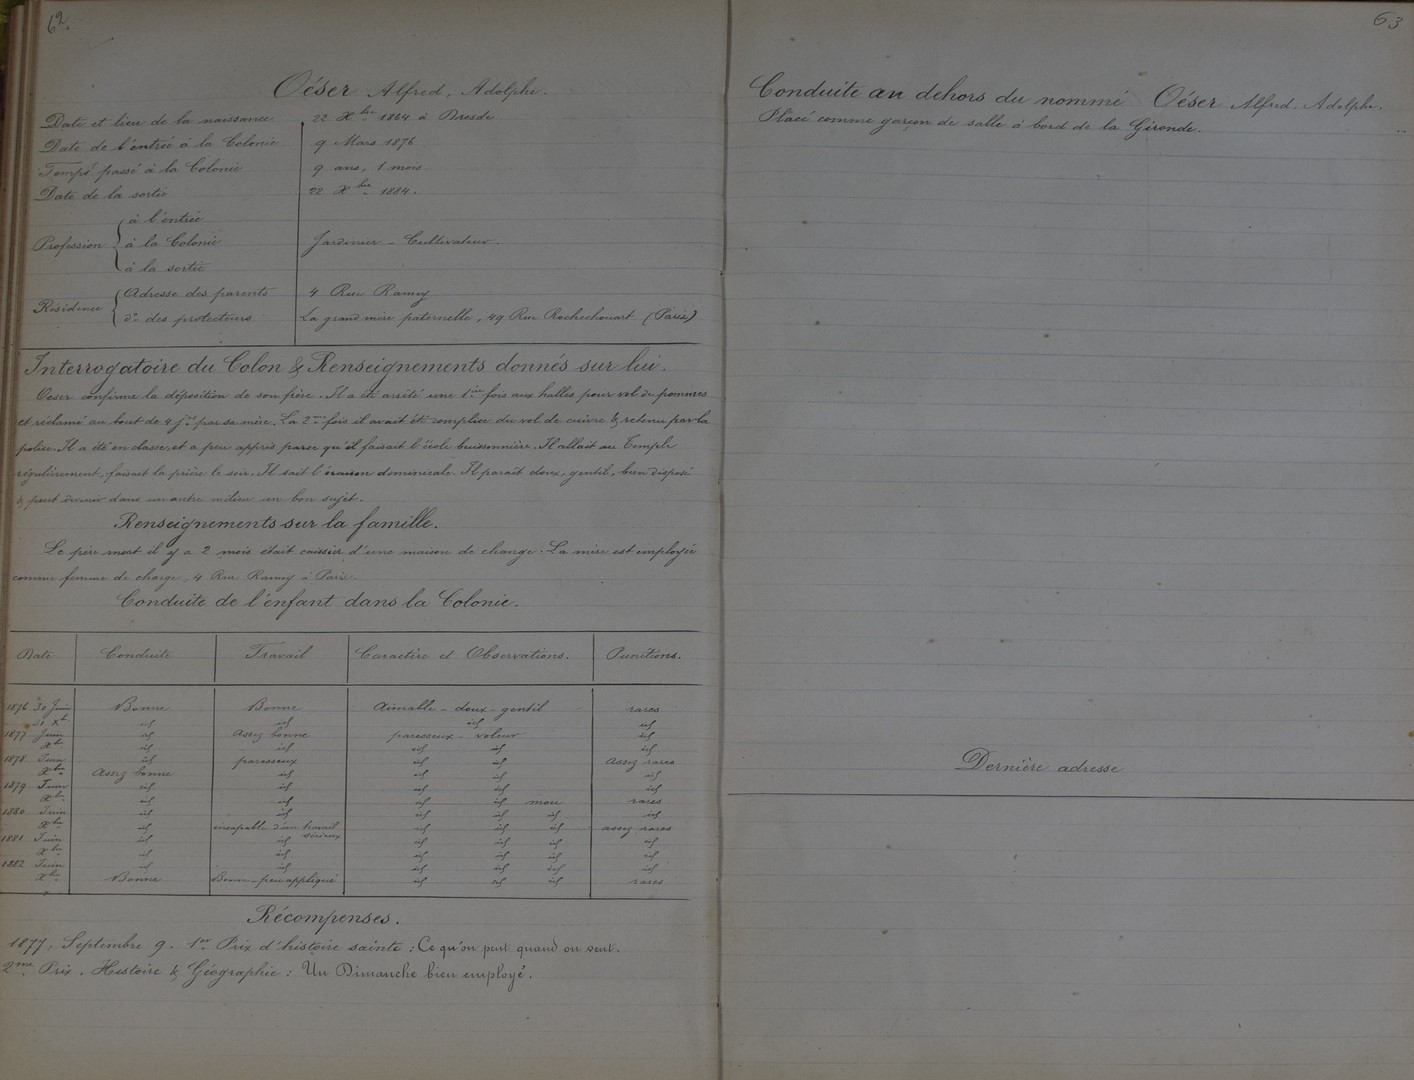 62.
Oéser Alfred, Adolphe.
Date et lieu de la naissance 22 Xbre 1864 à Dresde
Date de l'entrée à la Colonie 9 Mars 1876
Temps passé à la Colonie 9 ans, 1 mois
Date de la sortie 22 Xbre 1884.
à l'entrée
Profession à la Colonie Jardinier - Cultivateur.
à la sortie
Résidence Adresse des parents 4 Rue Ramey
do des protecteurs La grand mère paternelle, 49 Rue Rochechouart (Paris)
Interrogatoire du Colon & Renseignements donnés sur lui.
Oeser confirme la déposition de son frère. Il a été arrêté une 1ère fois aux halles pour vol de pommes
et réclamé au bout de 4 jrs par sa mère. La 2me fois il avait été complice du vol de cuivre & retenu par la
police. Il a été en classe et a peu appris parce qu'il faisait l'école buissonnière. Il allait au Temple
régulièrement, faisait la prière le soir. Il sait l'oraison dominicale. Il paraît doux, gentil, bien disposé
& peut devenir dans un autre milieu un bon sujet.
Renseignements sur la famille.
Le père mort il y a 2 mois était caissier d'une maison de change. La mère est employée
comme femme de charge, 4 Rue Ramey à Paris.
Conduite de l'enfant dans la Colonie.
Date Conduite Travail Caractère et Observations. Punitions.
1876 30 Juin Bonne Bonne Aimable - doux - gentil rares
31 Xbre id id id id
1877 Juin id Assez bonne paresseux - voleur id
Xbre id id id id id
1878 Juin id paresseux id id Assez rares
Xbre Assez bonne id id id id
1879 Juin id id id id id
Xbre id id id id mou rares
1880 Juin id id id id id id
Xbre id incapable d'un travail sérieux id id id assez rares
1881 Juin id id id id id id
Xbre id id id id id id
1882 Juin id id id id id id
Xbre Bonne Bonne - peu appliqué id id id rares
Récompenses.
1877. Septembre 9. 1er Prix d'histoire sainte : Ce qu'on peut quand on veut.
2me Prix. Histoire & Géographie : Un Dimanche bien employé.
63
Conduite au dehors du nommé Oéser Alfred. Adolphe.
Placé comme garçon de salle à bord de la Gironde.
Dernière adresse